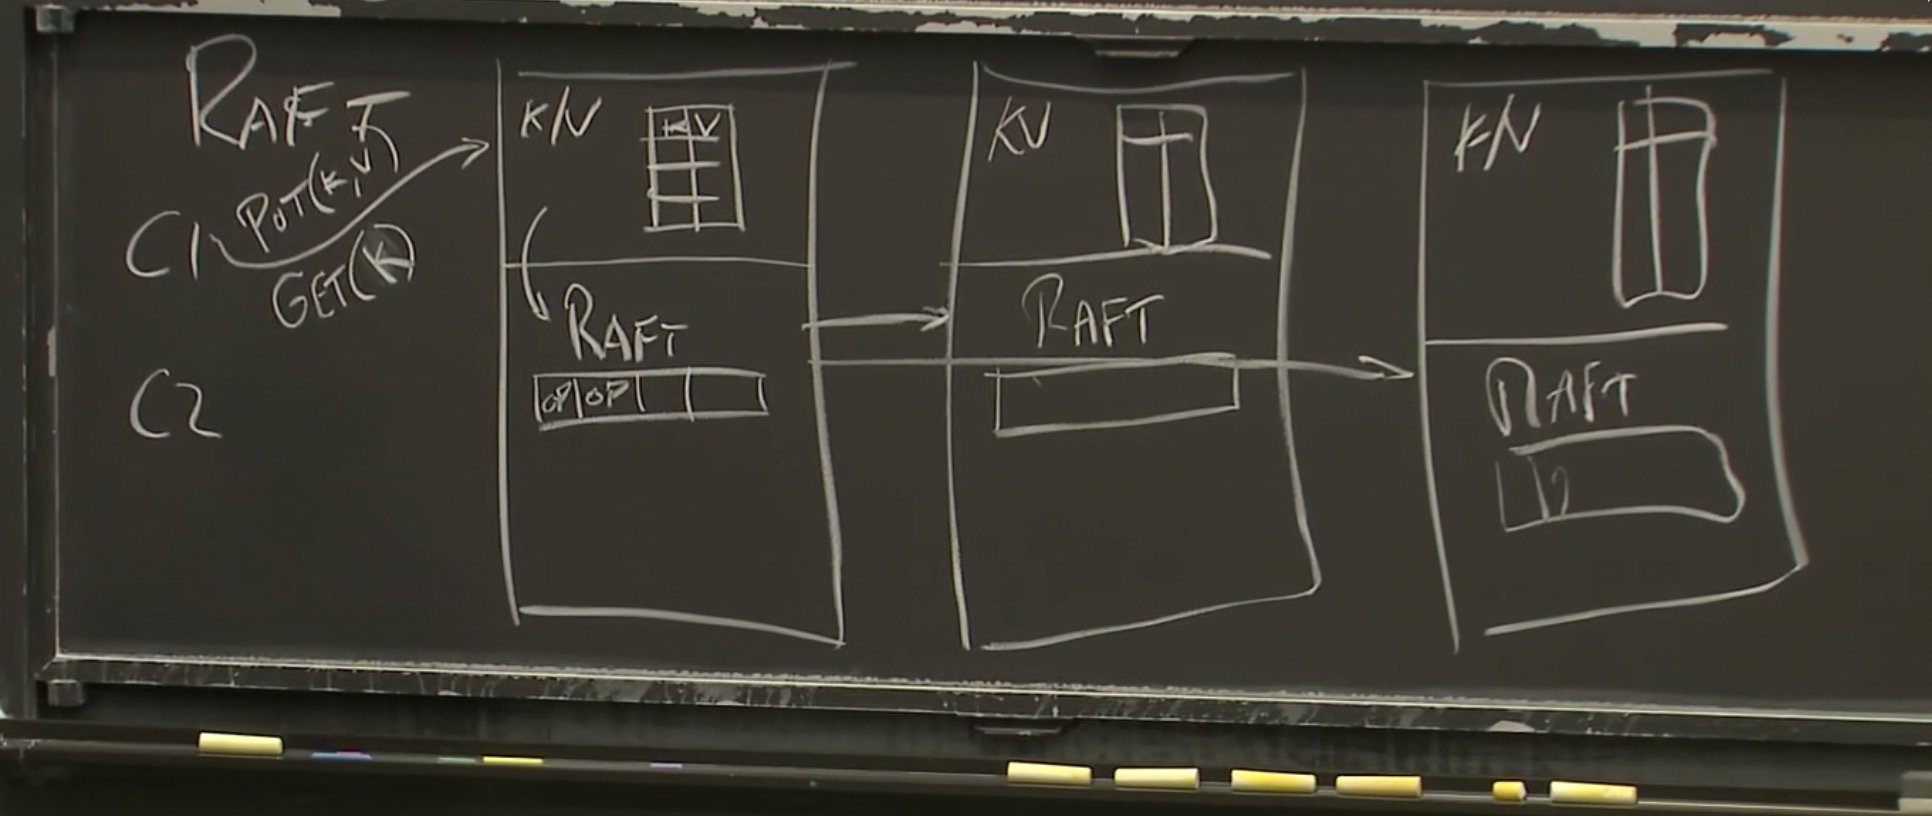 RAFT
C1
PUT(K,V)
GET(K)
C2
K/V
K V
RAFT
OP OP
KV
RAFT
K/V
RAFT